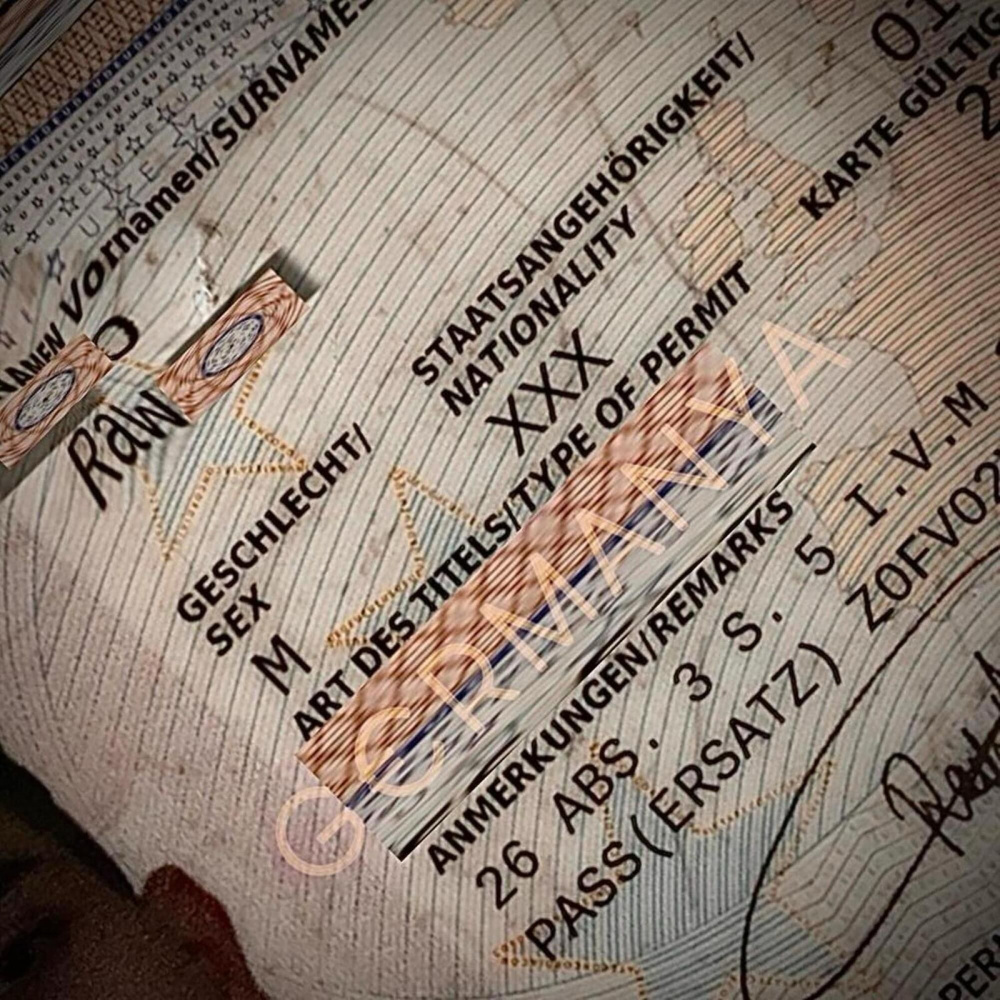 NAMEN Vornamen/SURNAMES
Raw
STAATSANGEHÖRIGKEIT/
NATIONALITY
XXX
KARTE GÜLTIG
01
GESCHLECHT/
SEX
M
ART DES TITELS/TYPE OF PERMIT
GERMANYA
ANMERKUNGEN/REMARKS
26 ABS. 3 S. 5 I.V.M
PASS(ERSATZ) Z0FV02